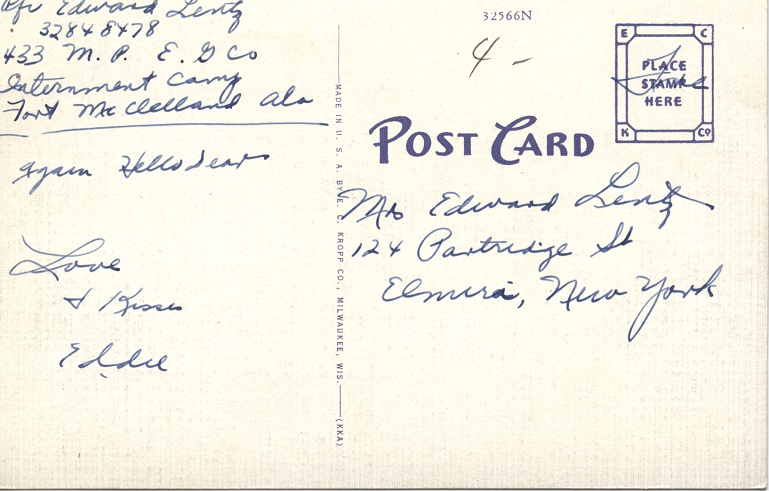 Pfc Edward Lentz
32848478
433 M. P. E. G Co
Internment Camp
Fort McClelland Ala
Again Hello Dear
Love
& Kisses
Eddie
MADE IN U. S. A. BY E. C. KROPP CO., MILWAUKEE, WIS.
(KKA)
32566N
4 -
E C
PLACE
STAMP
HERE
K CO
Free
POST CARD
Mrs Edward Lentz
124 Partridge St
Elmira, New York